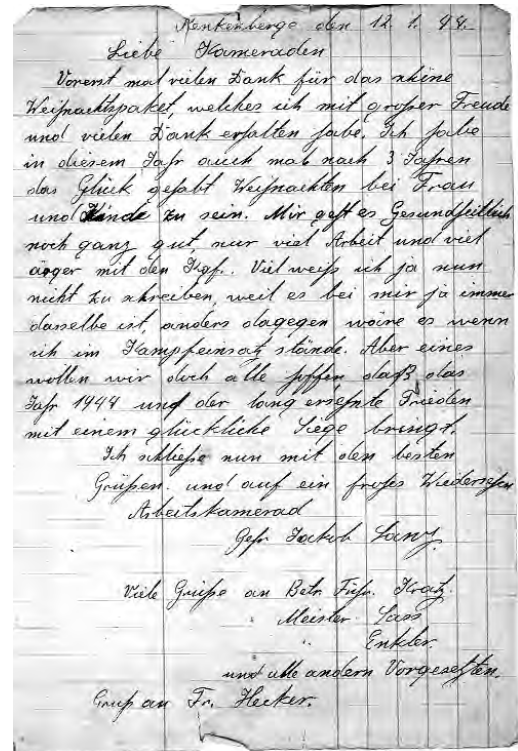 Kenkenberge den 12. 1. 44.
Liebe Kameraden
Vorerst mal vielen Dank für das schöne
Weihnachtspaket, welches ich mit großer Freude
und vielen Dank erhalten habe. Ich habe
in diesem Jahr auch mal nach 3 Jahren
das Glück gehabt Weihnachten bei Frau
und Kinde zu sein. Mir geht es Gesundheitlich
noch ganz gut, nur viel Arbeit und viel
ärger mit den Kgf. Viel weiß ich ja nun
nicht zu schreiben, weil es bei mir ja immer
dasselbe ist, anders dagegen wäre es wenn
ich im Kampfeinsatz stände. Aber eines
wollen wir doch alle hoffen, daß das
Jahr 1944 und der lang ersehnte Frieden
mit einem glückliche Siege bringt.
Ich schließe nun mit den besten
Grüßen. und auf ein frohes Wiedersehen
Arbeitskamerad
Gefr. Jackob
Viele Grüße an Betr. Führ. Kratz.
" Meister Lass
" Enkler.
und alle andern Vorgesetzten.
Gruß an Fr. Hecker.